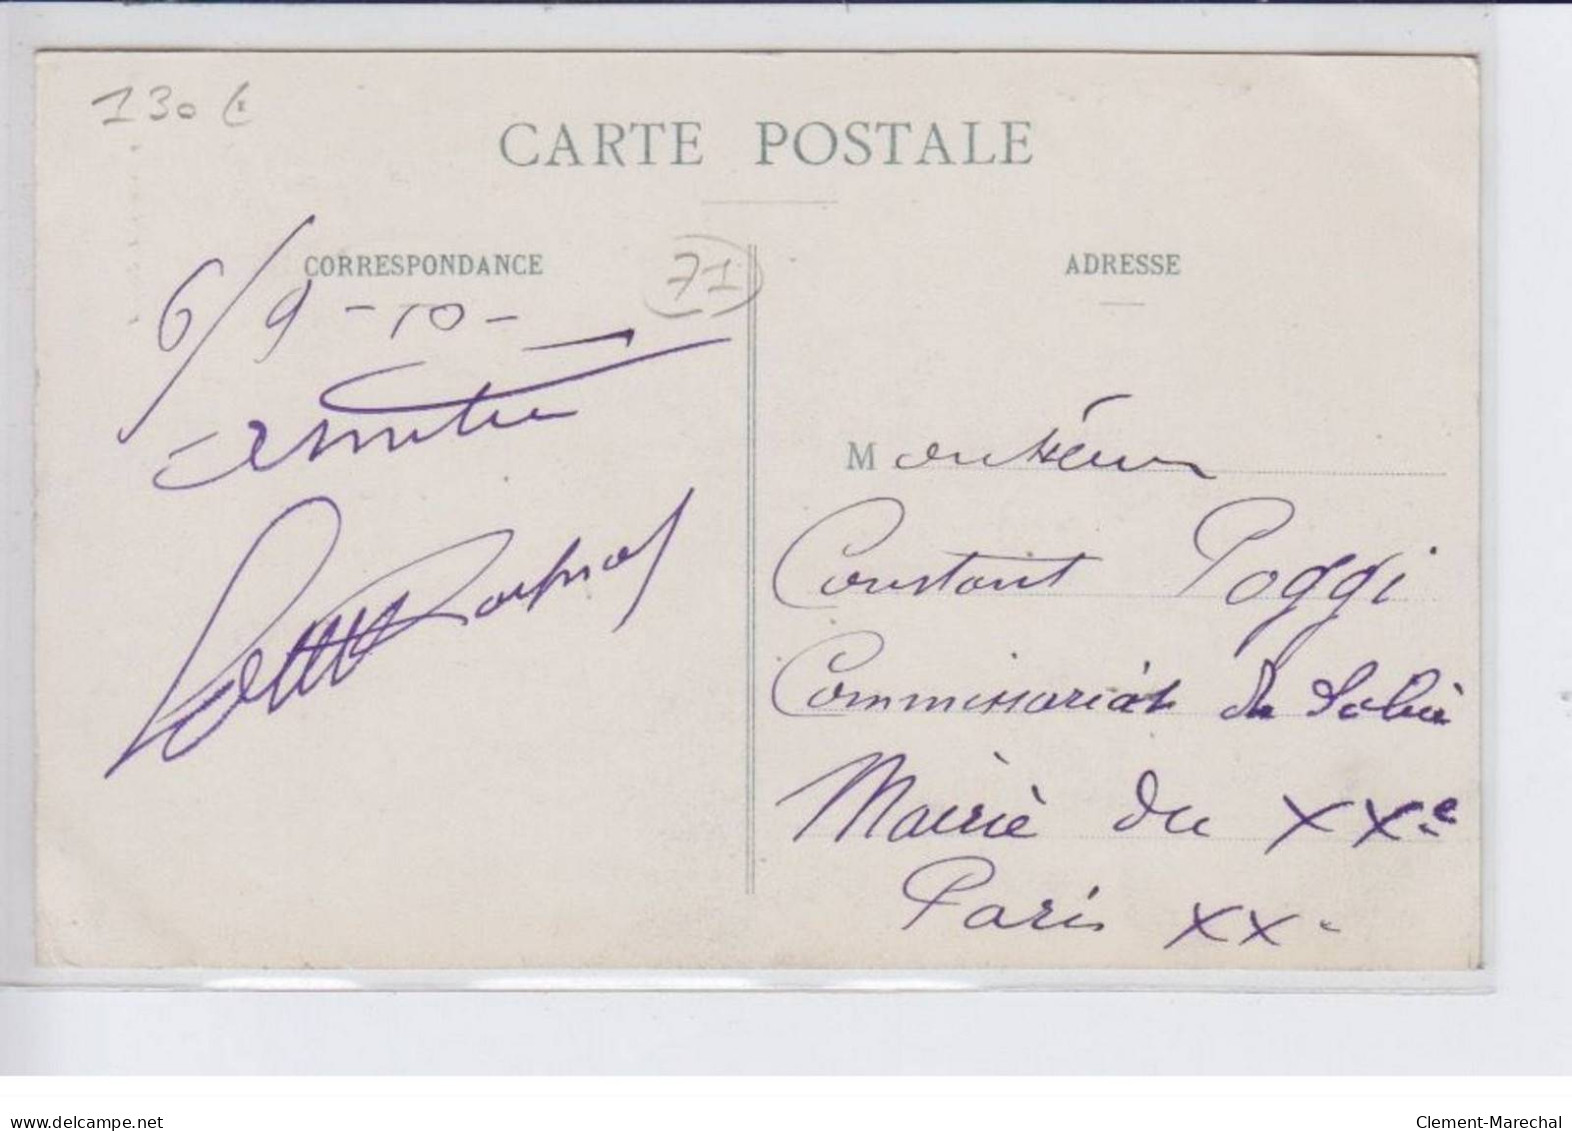 130 €
CARTE POSTALE
CORRESPONDANCE
71
ADRESSE
6/9-10-
Monsieur
Constant Poggi
Commissariat de Police
Mairie du XXe
Paris XX
delcampe.net
Clement-Marechal